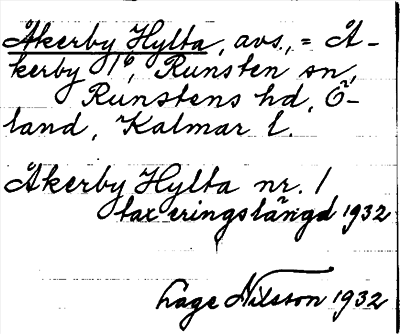 Åkerby Hylta, avs., = Å-
kerby 1⁰, Runsten sn,
Runstens hd, Ö-
land, Kalmar l.
Åkerby Hylta nr. 1
taxeringslängd 1932
Lage Nilsson 1932